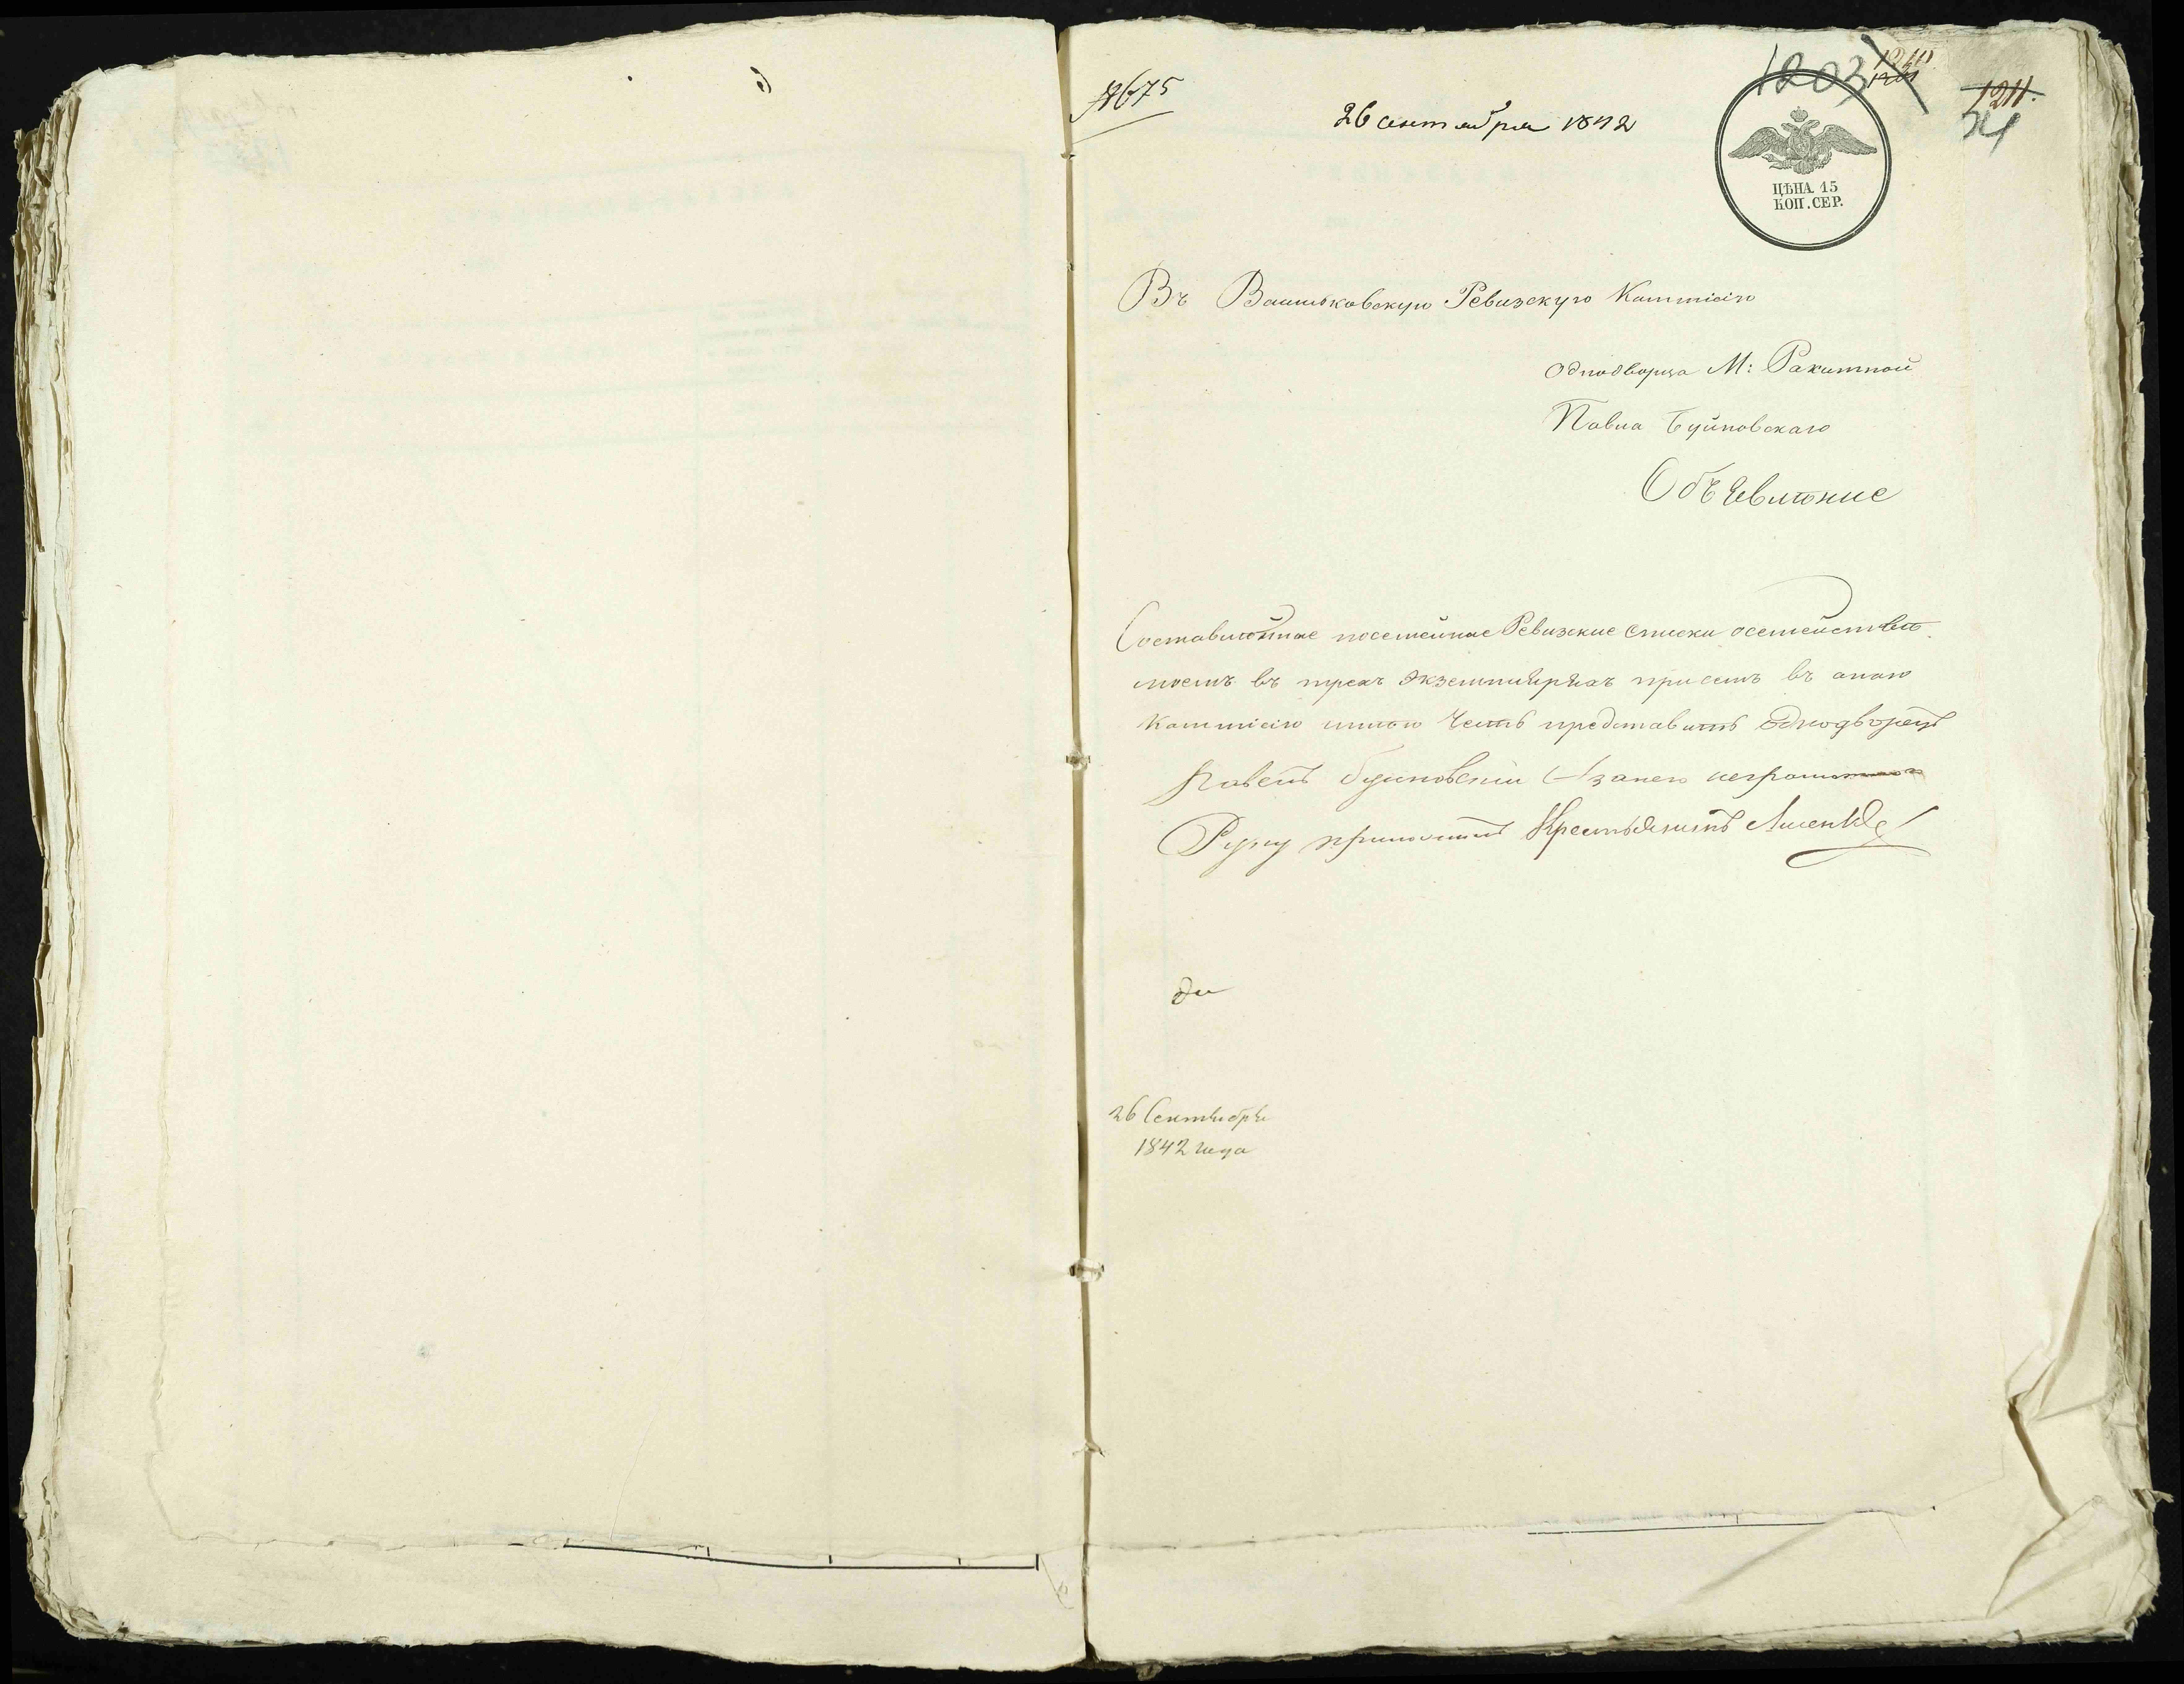 № 675
26 сентября 1842
1203
1211.
ЦѢНА 15
КОП. СЕР.
Въ Васильковскую Ревизскую Коммисію
Однодворца М: Ракитной
Павла Буйновскаго
Объявленіе
Составленные посемейные Ревизские списки осемействе
моемъ въ трехъ экземплярахъ при семъ въ оною
Коммисію имѣю честь представить Однодворецъ
Павелъ Буйновскій А занего неграмотнаго
Руку приложилъ Крестьянинъ
26 Сентября
1842 года